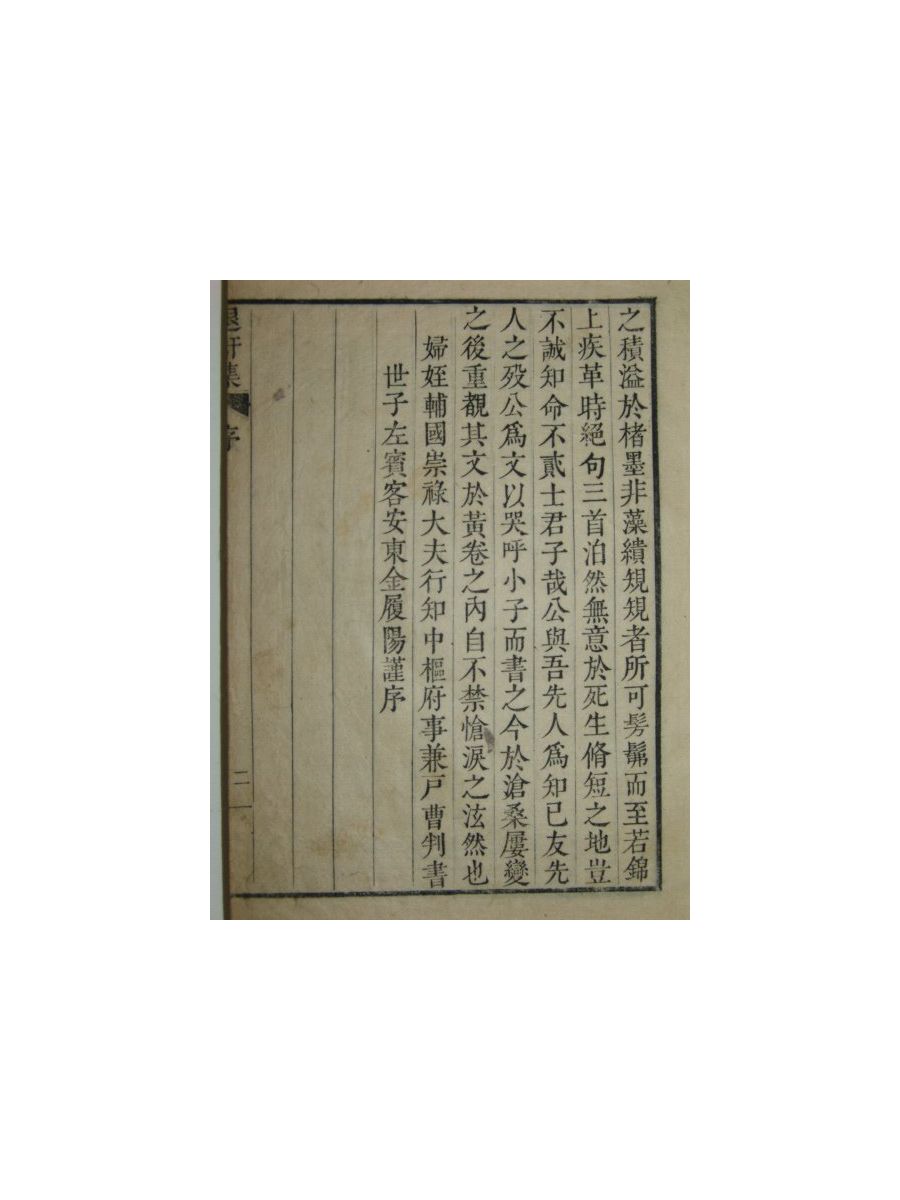 之積溢於楮墨非藻繢規規者所可髣髴而至若錦
上疾革時絕句三首泊然無意於死生脩短之地豈
不誠知命不貳士君子哉公與吾先人爲知已友先
人之歿公爲文以哭呼小子而書之今於滄桑屢變
之後重覩其文於黃卷之內自不禁愴淚之泫然也
婦姪輔國崇祿大夫行知中樞府事兼戶曹判書
世子左賓客安東金履陽謹序
退軒集 序 二